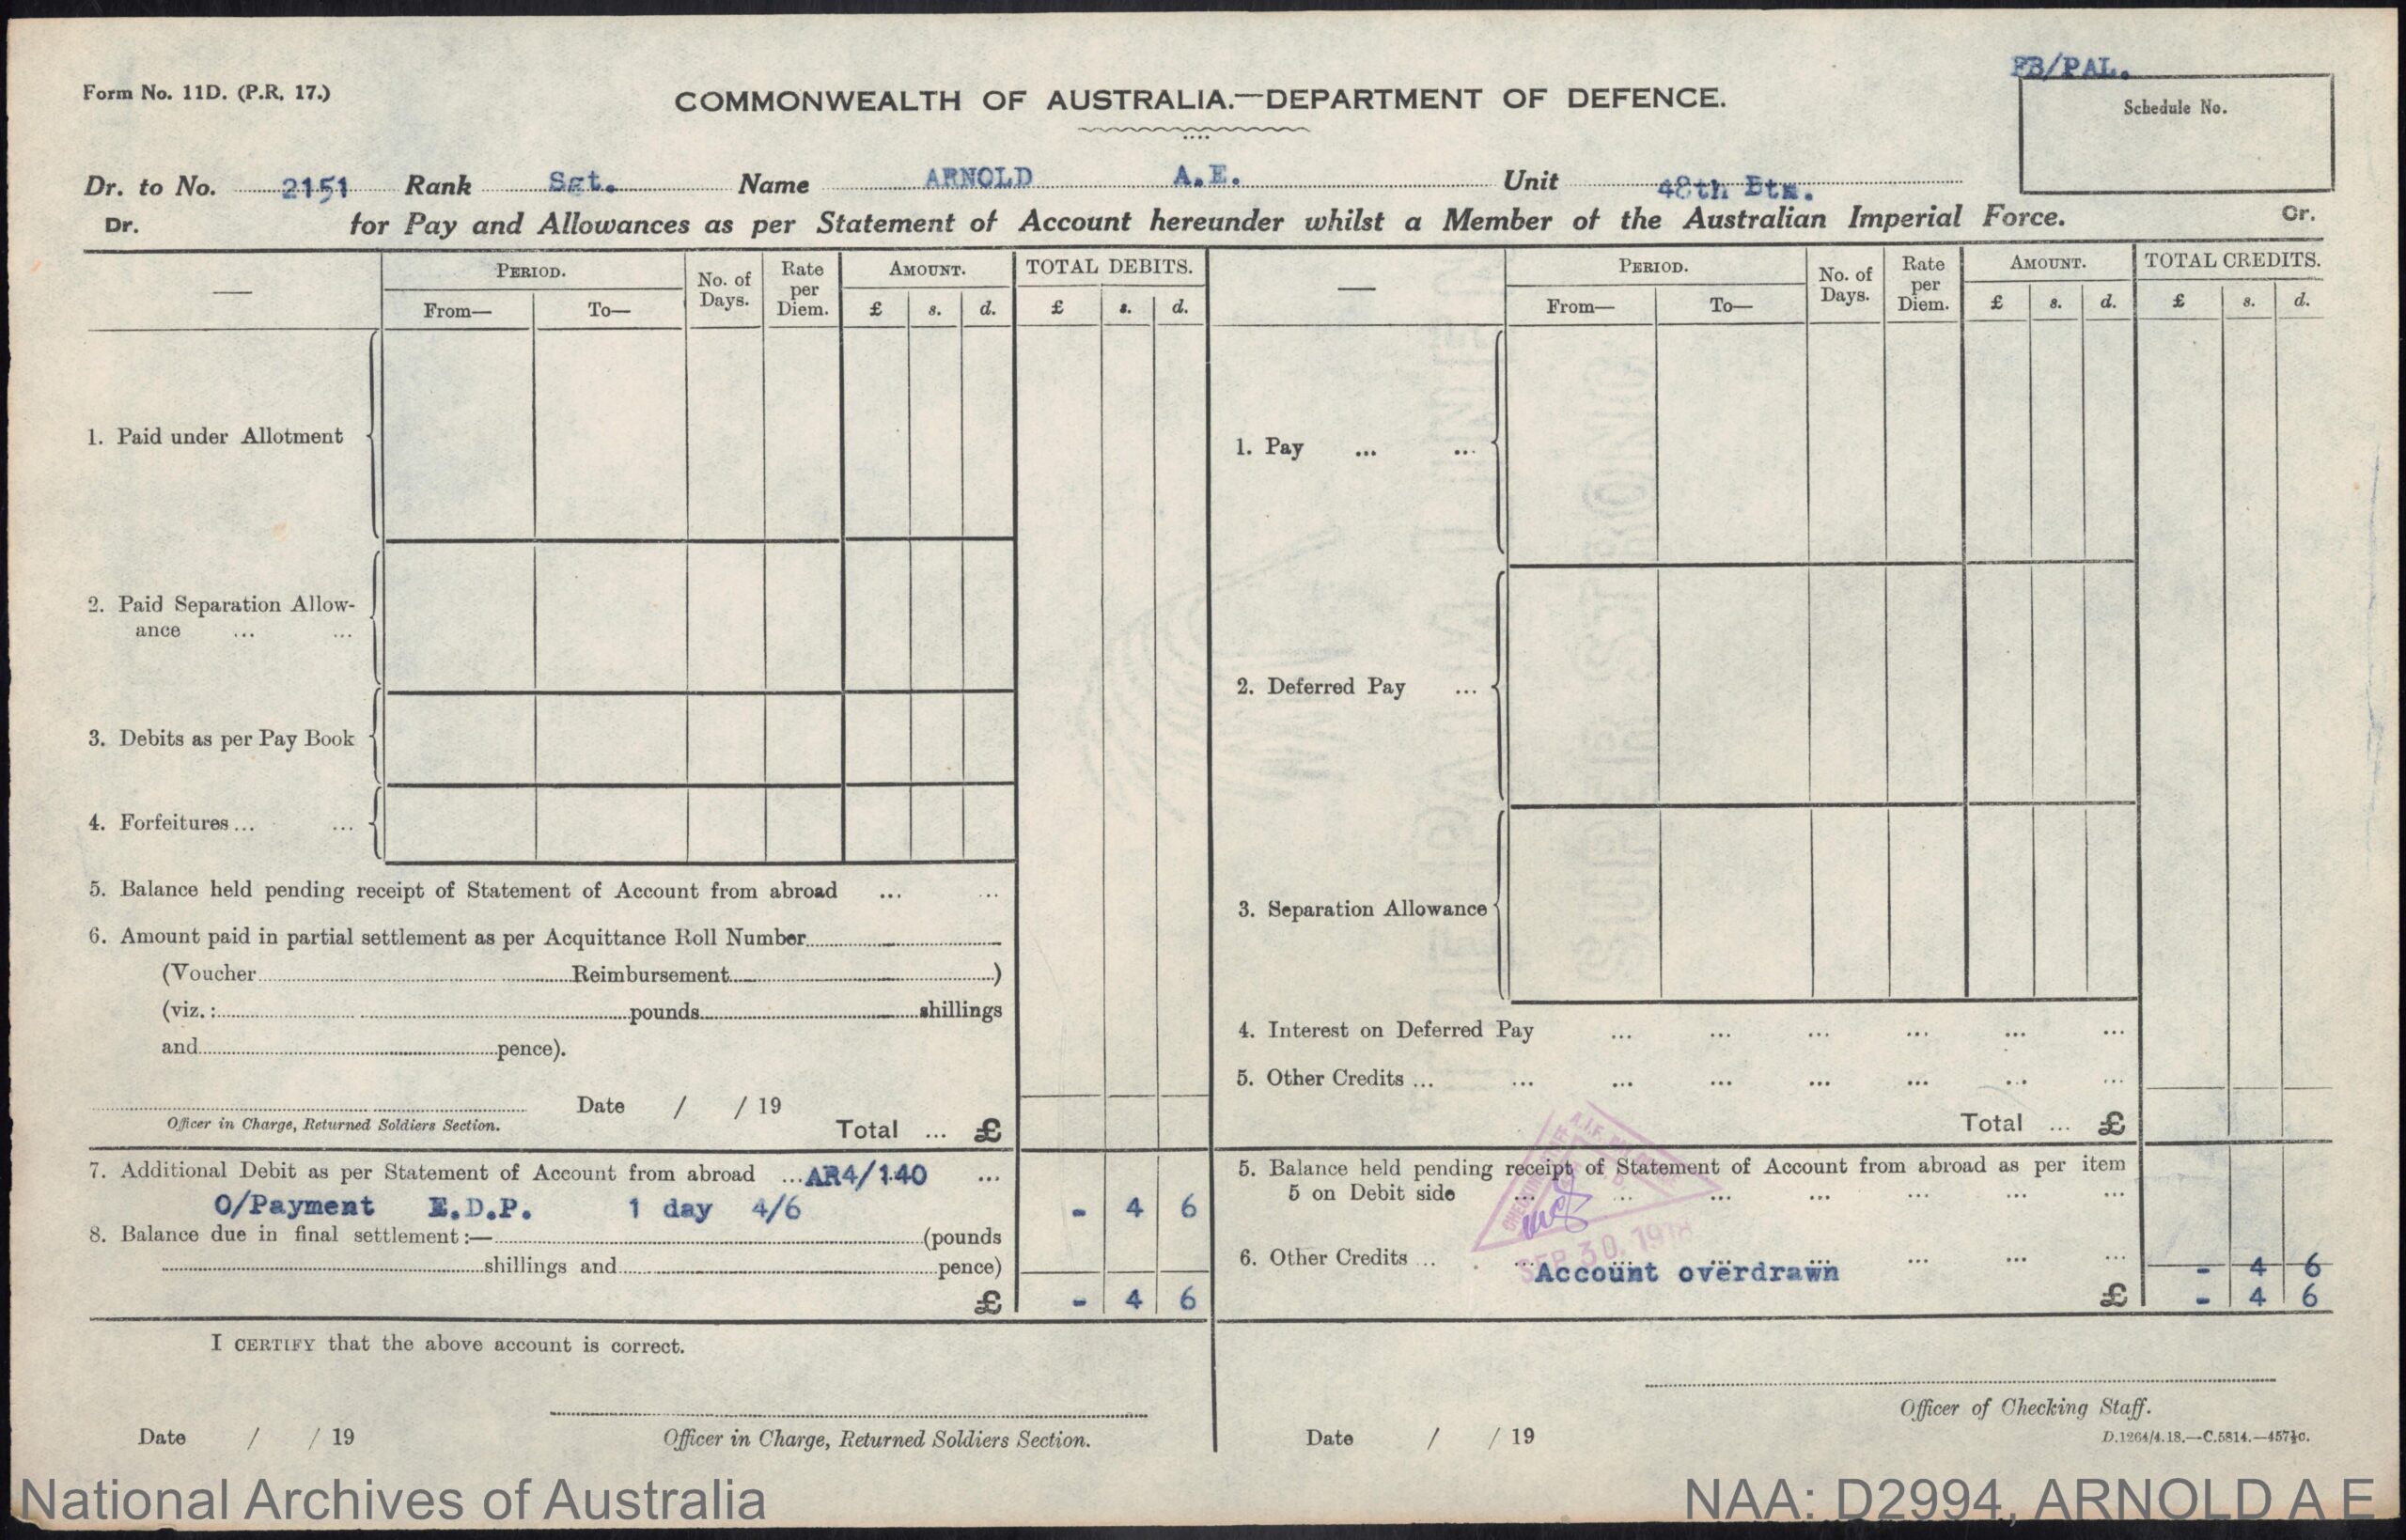 FB/PAL.
Form No. 11D. (P.R. 17.)
COMMONWEALTH OF AUSTRALIA.—DEPARTMENT OF DEFENCE.
Schedule No.
Dr. to No. 2151 Rank Sgt. Name ARNOLD A.E. Unit 48th Btn.
Dr. for Pay and Allowances as per Statement of Account hereunder whilst a Member of the Australian Imperial Force. Cr.
— PERIOD. No. of Days. Rate per Diem. AMOUNT. TOTAL DEBITS.
From— To— £ s. d. £ s. d.
1. Paid under Allotment
2. Paid Separation Allow-
ance ... ...
3. Debits as per Pay Book
4. Forfeitures ... ...
5. Balance held pending receipt of Statement of Account from abroad ... ...
6. Amount paid in partial settlement as per Acquittance Roll Number
(Voucher Reimbursement )
(viz. : pounds shillings
and pence).
Date / / 19
Officer in Charge, Returned Soldiers Section.
Total ... £
7. Additional Debit as per Statement of Account from abroad ... AR4/140 ...
O/Payment E.D.P. 1 day 4/6 - 4 6
8. Balance due in final settlement :— (pounds
shillings and pence)
£ - 4 6
I CERTIFY that the above account is correct.
Date / / 19
Officer in Charge, Returned Soldiers Section.
— PERIOD. No. of Days. Rate per Diem. AMOUNT. TOTAL CREDITS.
From— To— £ s. d. £ s. d.
1. Pay ... ...
2. Deferred Pay ...
3. Separation Allowance
4. Interest on Deferred Pay ... ... ... ... ... ...
5. Other Credits ... ... ... ... ... ... ... ...
Total ... £
5. Balance held pending receipt of Statement of Account from abroad as per item
5 on Debit side ... ... ... ... ... ... ...
SEP 30. 1918
6. Other Credits ... ... ... ... ... ... ... ...
Account overdrawn - 4 6
£ - 4 6
Officer of Checking Staff.
Date / / 19
D.1264/4.18.—C.5814.—457½c.
National Archives of Australia
NAA: D2994, ARNOLD A E